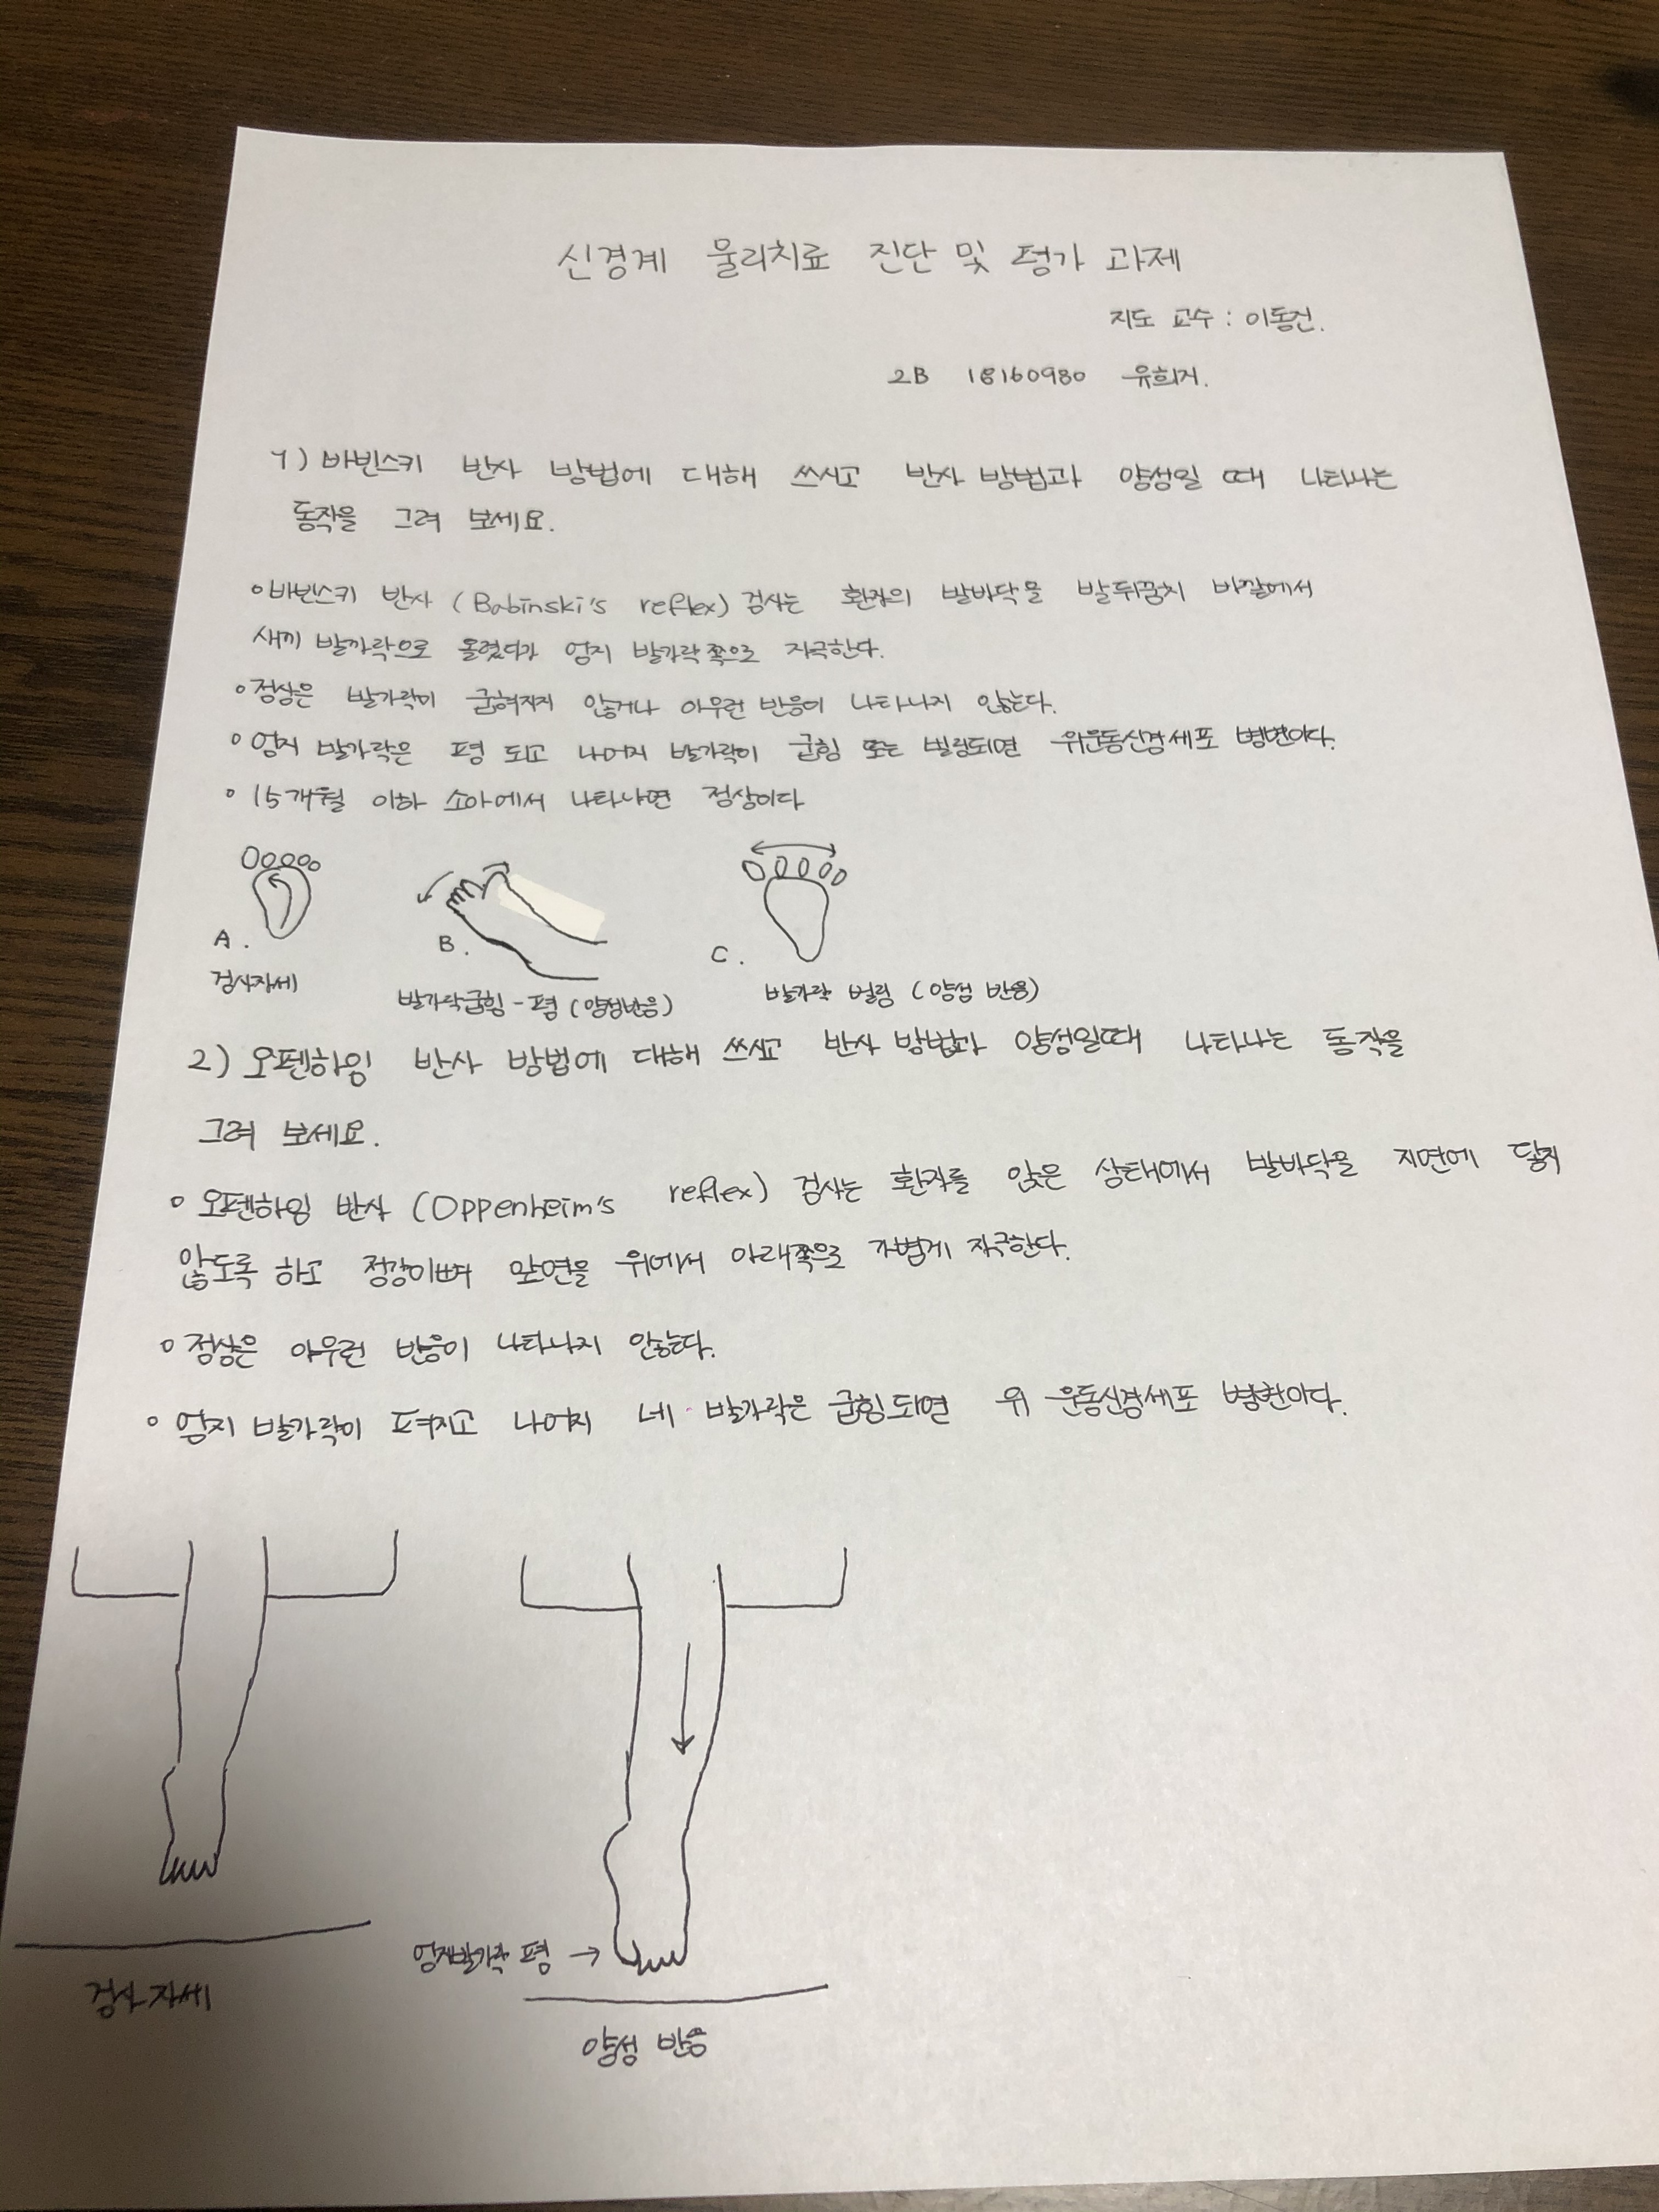 신경계 물리치료 진단 및 평가 과제
지도 교수 : 이동건.
2B 18160980 유희지.
1) 바빈스키 반사 방법에 대해 쓰시고 반사 방법과 양성일 때 나타나는
동작을 그려 보세요.
바빈스키 반사 (Babinski's reflex) 검사는 환자의 발바닥을 발뒤꿈치 바깥에서
새끼 발가락으로 올렸다가 엄지 발가락 쪽으로 자극한다.
정상은 발가락이 굽혀지지 않거나 아무런 반응이 나타나지 않는다.
엄지 발가락은 폄 되고 나머지 발가락이 굽힘 또는 벌림되면 위운동신경세포 병변이다.
15개월 이하 소아에서 나타나면 정상이다
A.
검사자세
B.
발가락굽힘 - 폄 (양성반응)
C.
발가락 벌림 (양성 반응)
2) 오펜하임 반사 방법에 대해 쓰시고 반사 방법과 양성일때 나타나는 동작을
그려 보세요.
오펜하임 반사 (Oppenheim's reflex) 검사는 환자를 앉은 상태에서 발바닥을 지면에 닿지
않도록 하고 정강이뼈 앞면을 위에서 아래쪽으로 가볍게 자극한다.
정상은 아무런 반응이 나타나지 않는다.
엄지 발가락이 펴지고 나머지 네 발가락은 굽힘되면 위 운동신경세포 병변이다.
검사자세
엄지발가락 폄 →
양성 반응